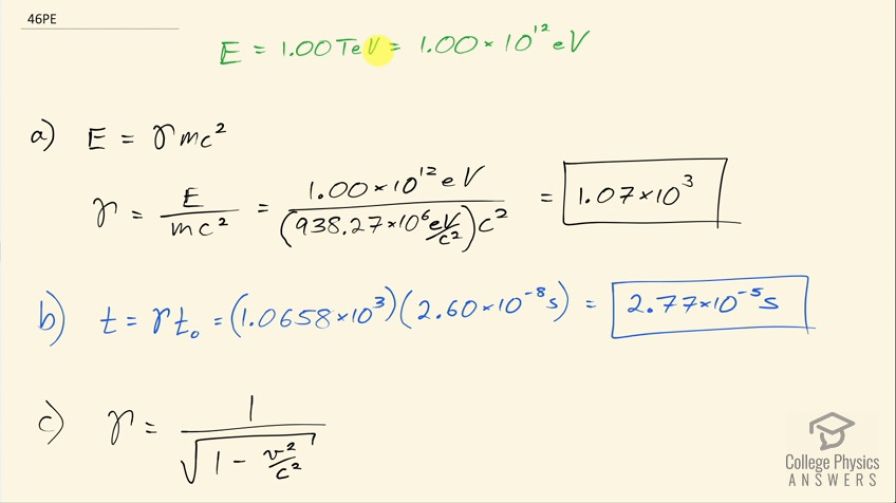 46PE
E = 1.00 TeV = 1.00 × 10¹² eV
a) E = γmc²
γ = E/mc² = 1.00×10¹² eV/(938.27×10⁶ eV/c²)c² = 1.07×10³
b) t = γt₀ = (1.0658×10³)(2.60×10⁻⁸s) = 2.77×10⁻⁵s
c) γ = 1/√(1 − v²/c²)
College Physics
ANSWERS